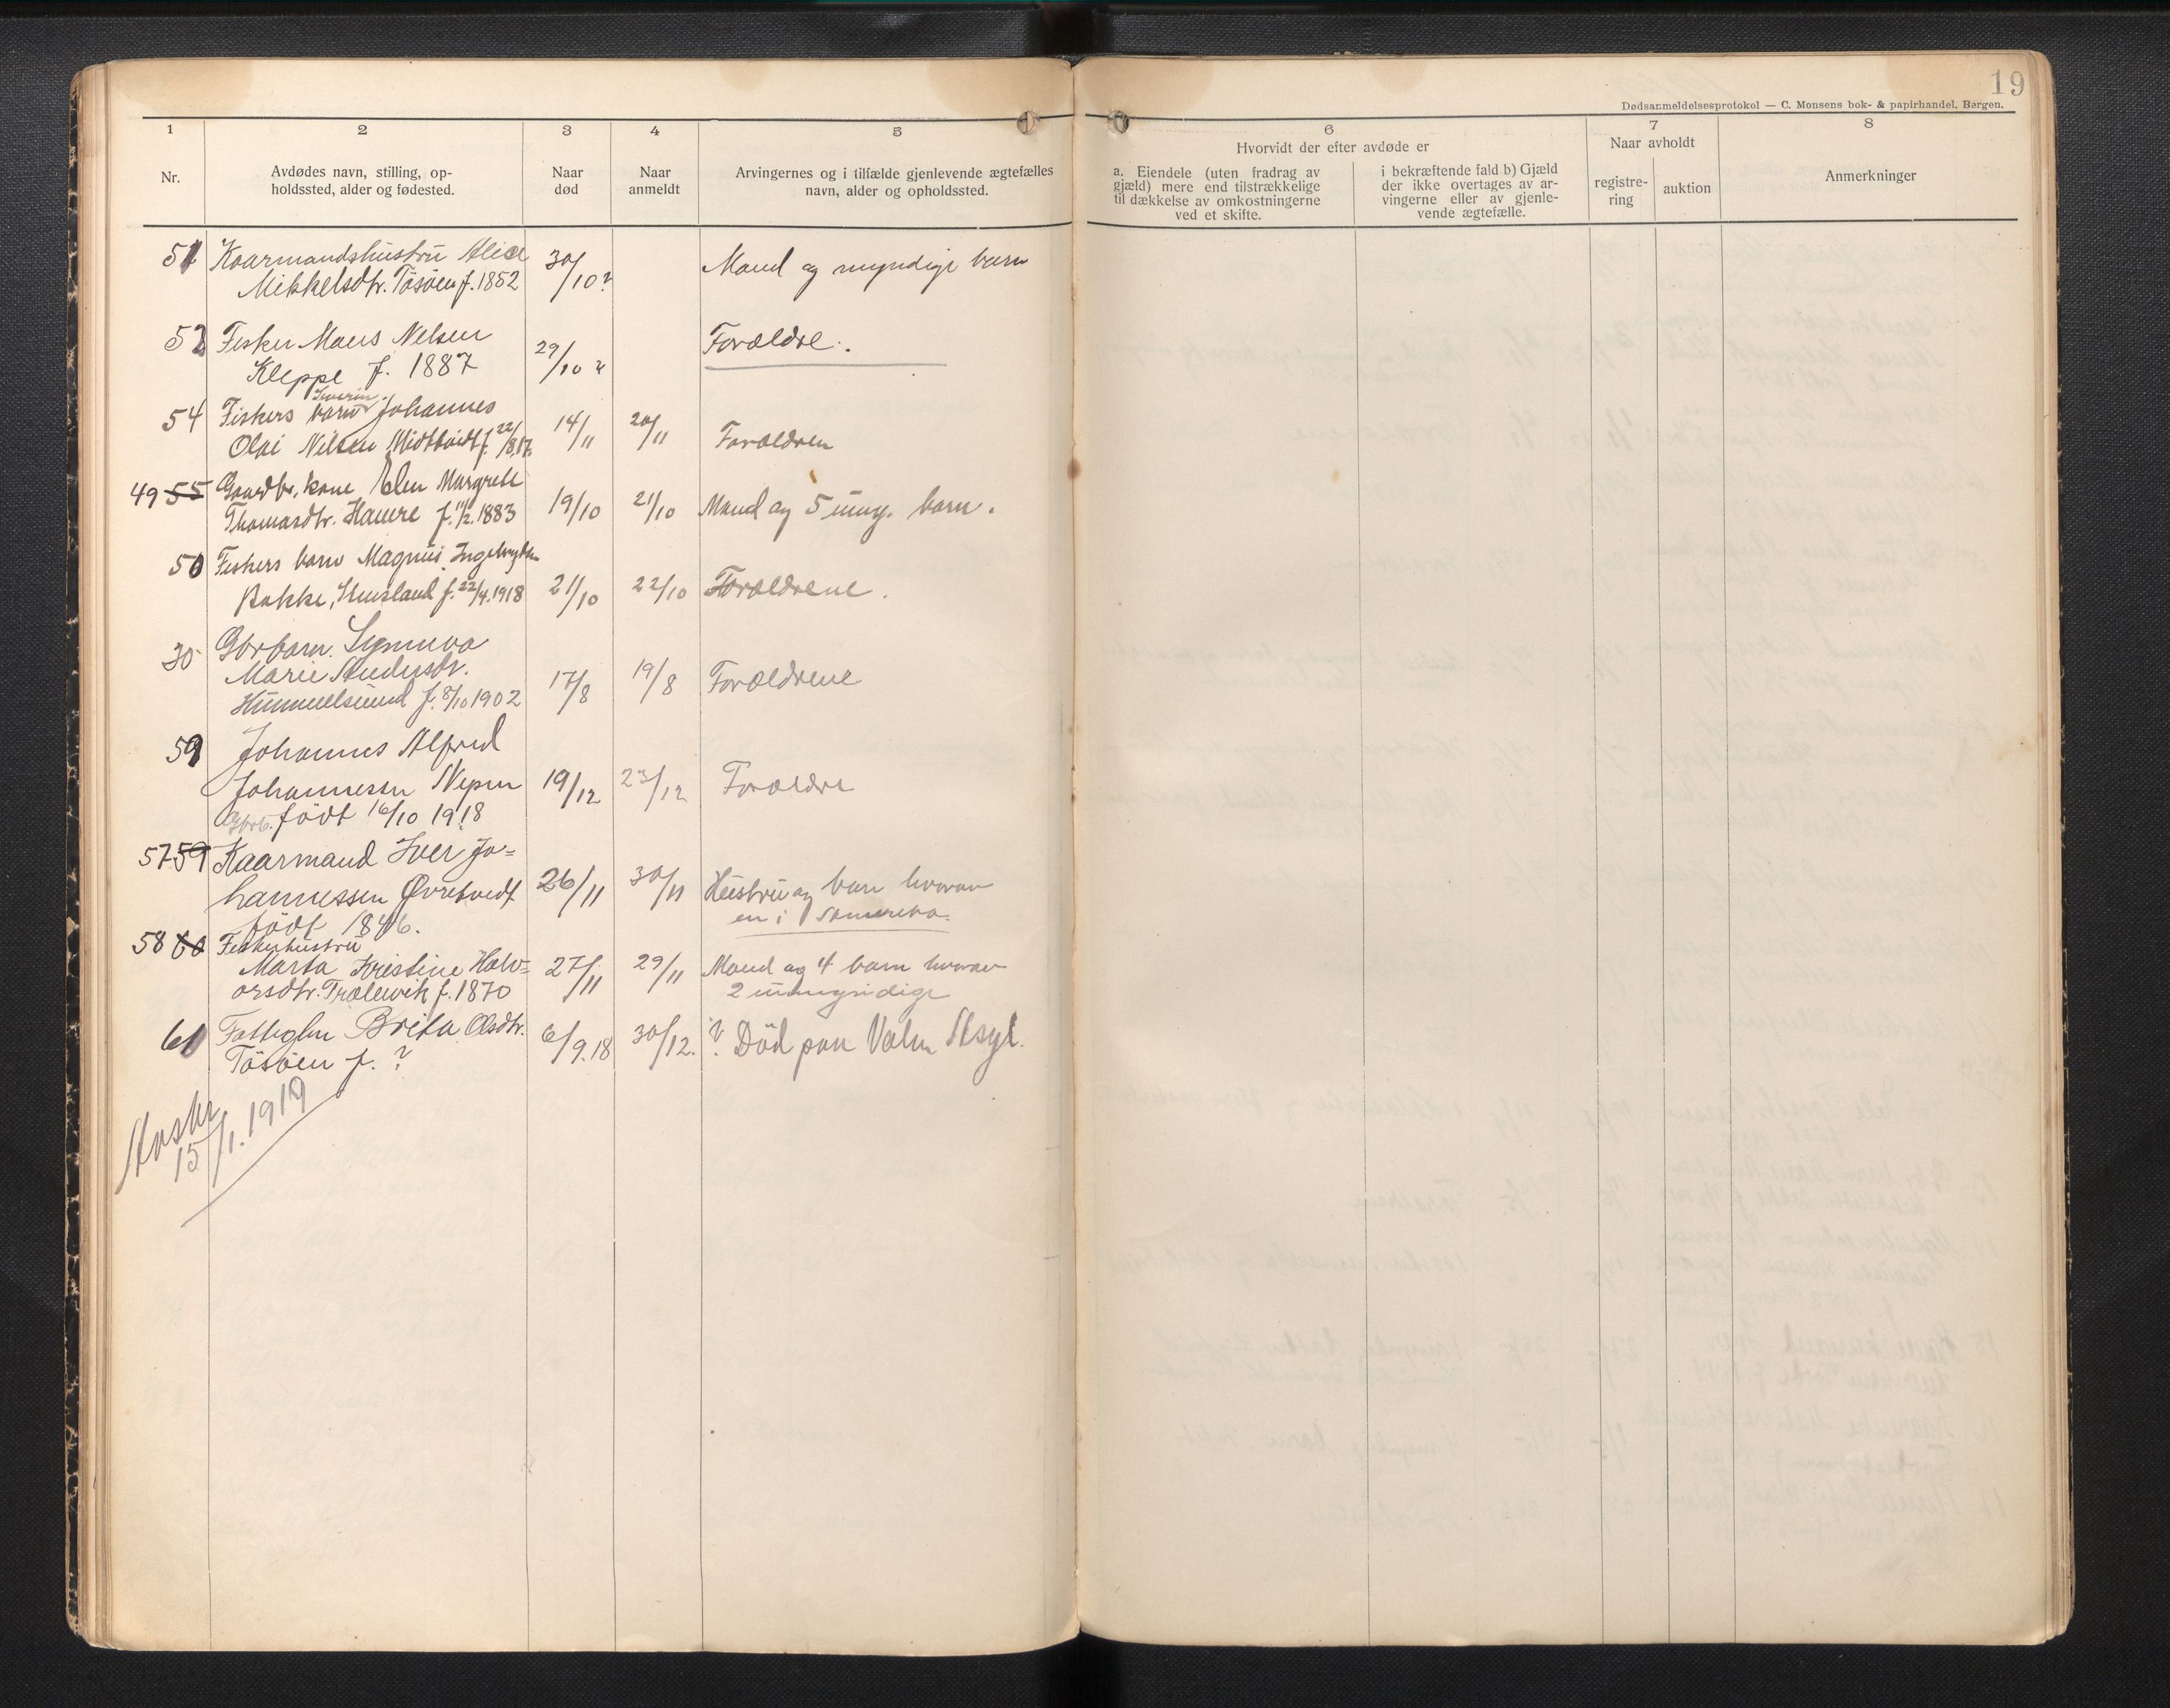 19
Dødsanmeldelsesprotokol — C. Monsens bok- & papirhandel, Bergen.
1 2 3 4 5 6 7 8
Nr.
Avdødes navn, stilling, op-
holdssted, alder og fødested.
Naar
død
Naar
anmeldt
Arvingernes og i tilfælde gjenlevende ægtefælles
navn, alder og opholdssted.
Hvorvidt der efter avdøde er
a. Eiendele (uten fradrag av
gjæld) mere end tilstrækkelige
til dækkelse av omkostningerne
ved et skifte.
i bekræftende fald b) Gjæld
der ikke overtages av ar-
vingerne eller av gjenle-
vende ægtefælle.
Naar avholdt
registre-
ring
auktion
Anmerkninger
51 Kaarmandshustru 30/10? Mand og myndige barn
Mikkelsdtr. Tösöen f. 1852
52 Fisker Maus Nelsen 29/10 Forældre.
Kleppe f. 1887
54 Fiskers barn Severin Johannes 14/11 20/11 Forældren
Olai Nilsen Midttveidt f. 22/8.17.
49 55 Gaardbr. kone Elen Margrete 19/10 21/10 Mand og 5 umy. barn.
Thomasdtr. Haure f. 11/2.1883
50 Fiskers barn Magnus 21/10 22/10 Forældrene.
Bakke, f. 22/4.1918
30 Gbrbarn. Synneva 17/8 19/8 Forældrene
Marie
Hummelsund f. 8/10 1902
59 Johannes Alfred
Johannessen Vepen 19/12 23/12 Forældre
Gbrb. född 16/10 1918
57 59 Kaarmand Iver Jo=
hannessen Øvretvedt 26/11 30/11 Hustru og barn hvorav
född 1846. en i Amerika.
58 60 Fiskerhustru
Marta Kristine Halv= 27/11 29/11 Mand og 4 barn hvorav
orsdtr. Trælevik f. 1870 2 umyndige
61 Fattiglem Brita Olsdtr. 6/9.18 30/12. ? Död paa Valen Asyl.
Tösöen f. ?
Avskr
15/1.1919